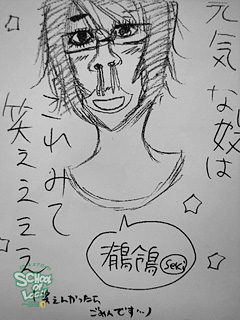 元気な奴は
これみて
笑ええええ
鶺鴒
Seki
SCHOOL OF LOCK!
えんかったら
ごめんです…ノ